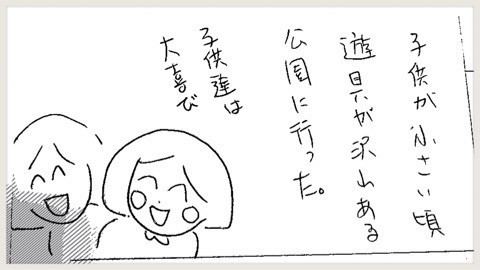 子供が小さい頃
遊具が沢山ある
公園に行った。
子供達は
大喜び